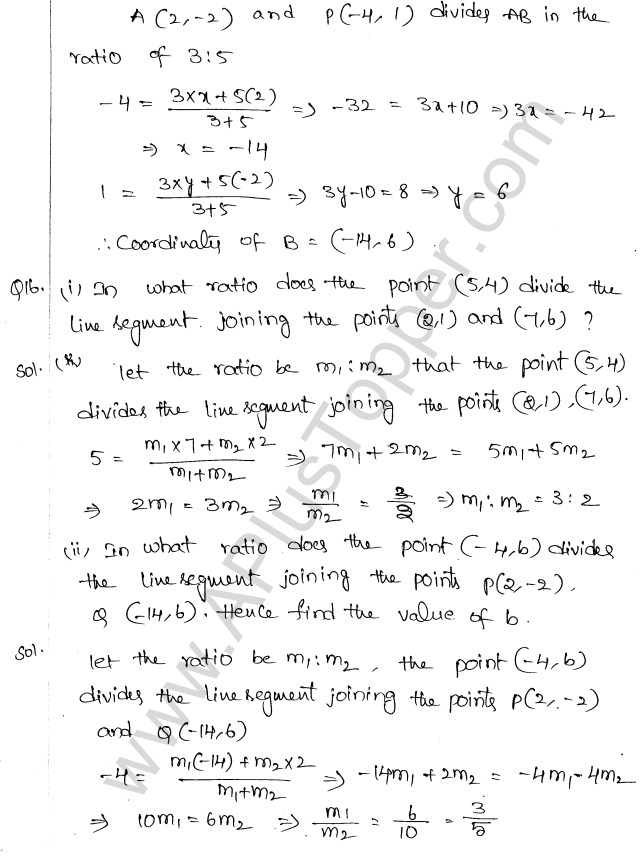 A (2,-2) and P(-4, 1) divides AB in the
ratio of 3:5
-4 = (3×x + 5(2))/(3+5) => -32 = 3x+10 => 3x = -42
=> x = -14
1 = (3×y + 5(-2))/(3+5) => 3y-10 = 8 => y = 6
∴ Coordinaty of B = (-14, 6).
Q16. (i) In what ratio does the point (5,4) divide the
line segment. joining the points (2,1) and (7,6) ?
Sol. let the ratio be m₁:m₂ that the point (5,4)
divides the line segment joining the points (2,1), (7,6).
5 = (m₁×7 + m₂×2)/(m₁+m₂) => 7m₁ + 2m₂ = 5m₁ + 5m₂
=> 2m₁ = 3m₂ => m₁/m₂ = 3/2 => m₁:m₂ = 3:2
(ii) In what ratio does the point (-4,b) divides
the line segment joining the points P(2,-2),
Q (-14,6). Hence find the value of b.
Sol. let the ratio be m₁:m₂, the point (-4,b)
divides the line segment joining the points P(2,-2)
and Q(-14,6)
-4 = (m₁(-14) + m₂×2)/(m₁+m₂) => -14m₁ + 2m₂ = -4m₁ - 4m₂
=> 10m₁ = 6m₂ => m₁/m₂ = 6/10 = 3/5
www.APlusTopper.com